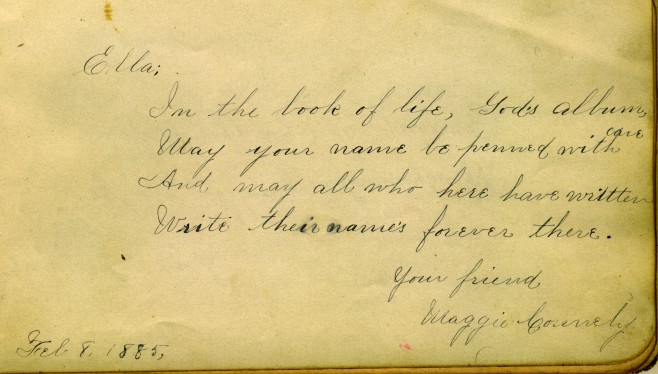 Ella;
In the book of life, God's album,
May your name be penned with care
And may all who here have written
Write their name's forever there.
Your friend
Maggie Connely
Feb 8. 1885,